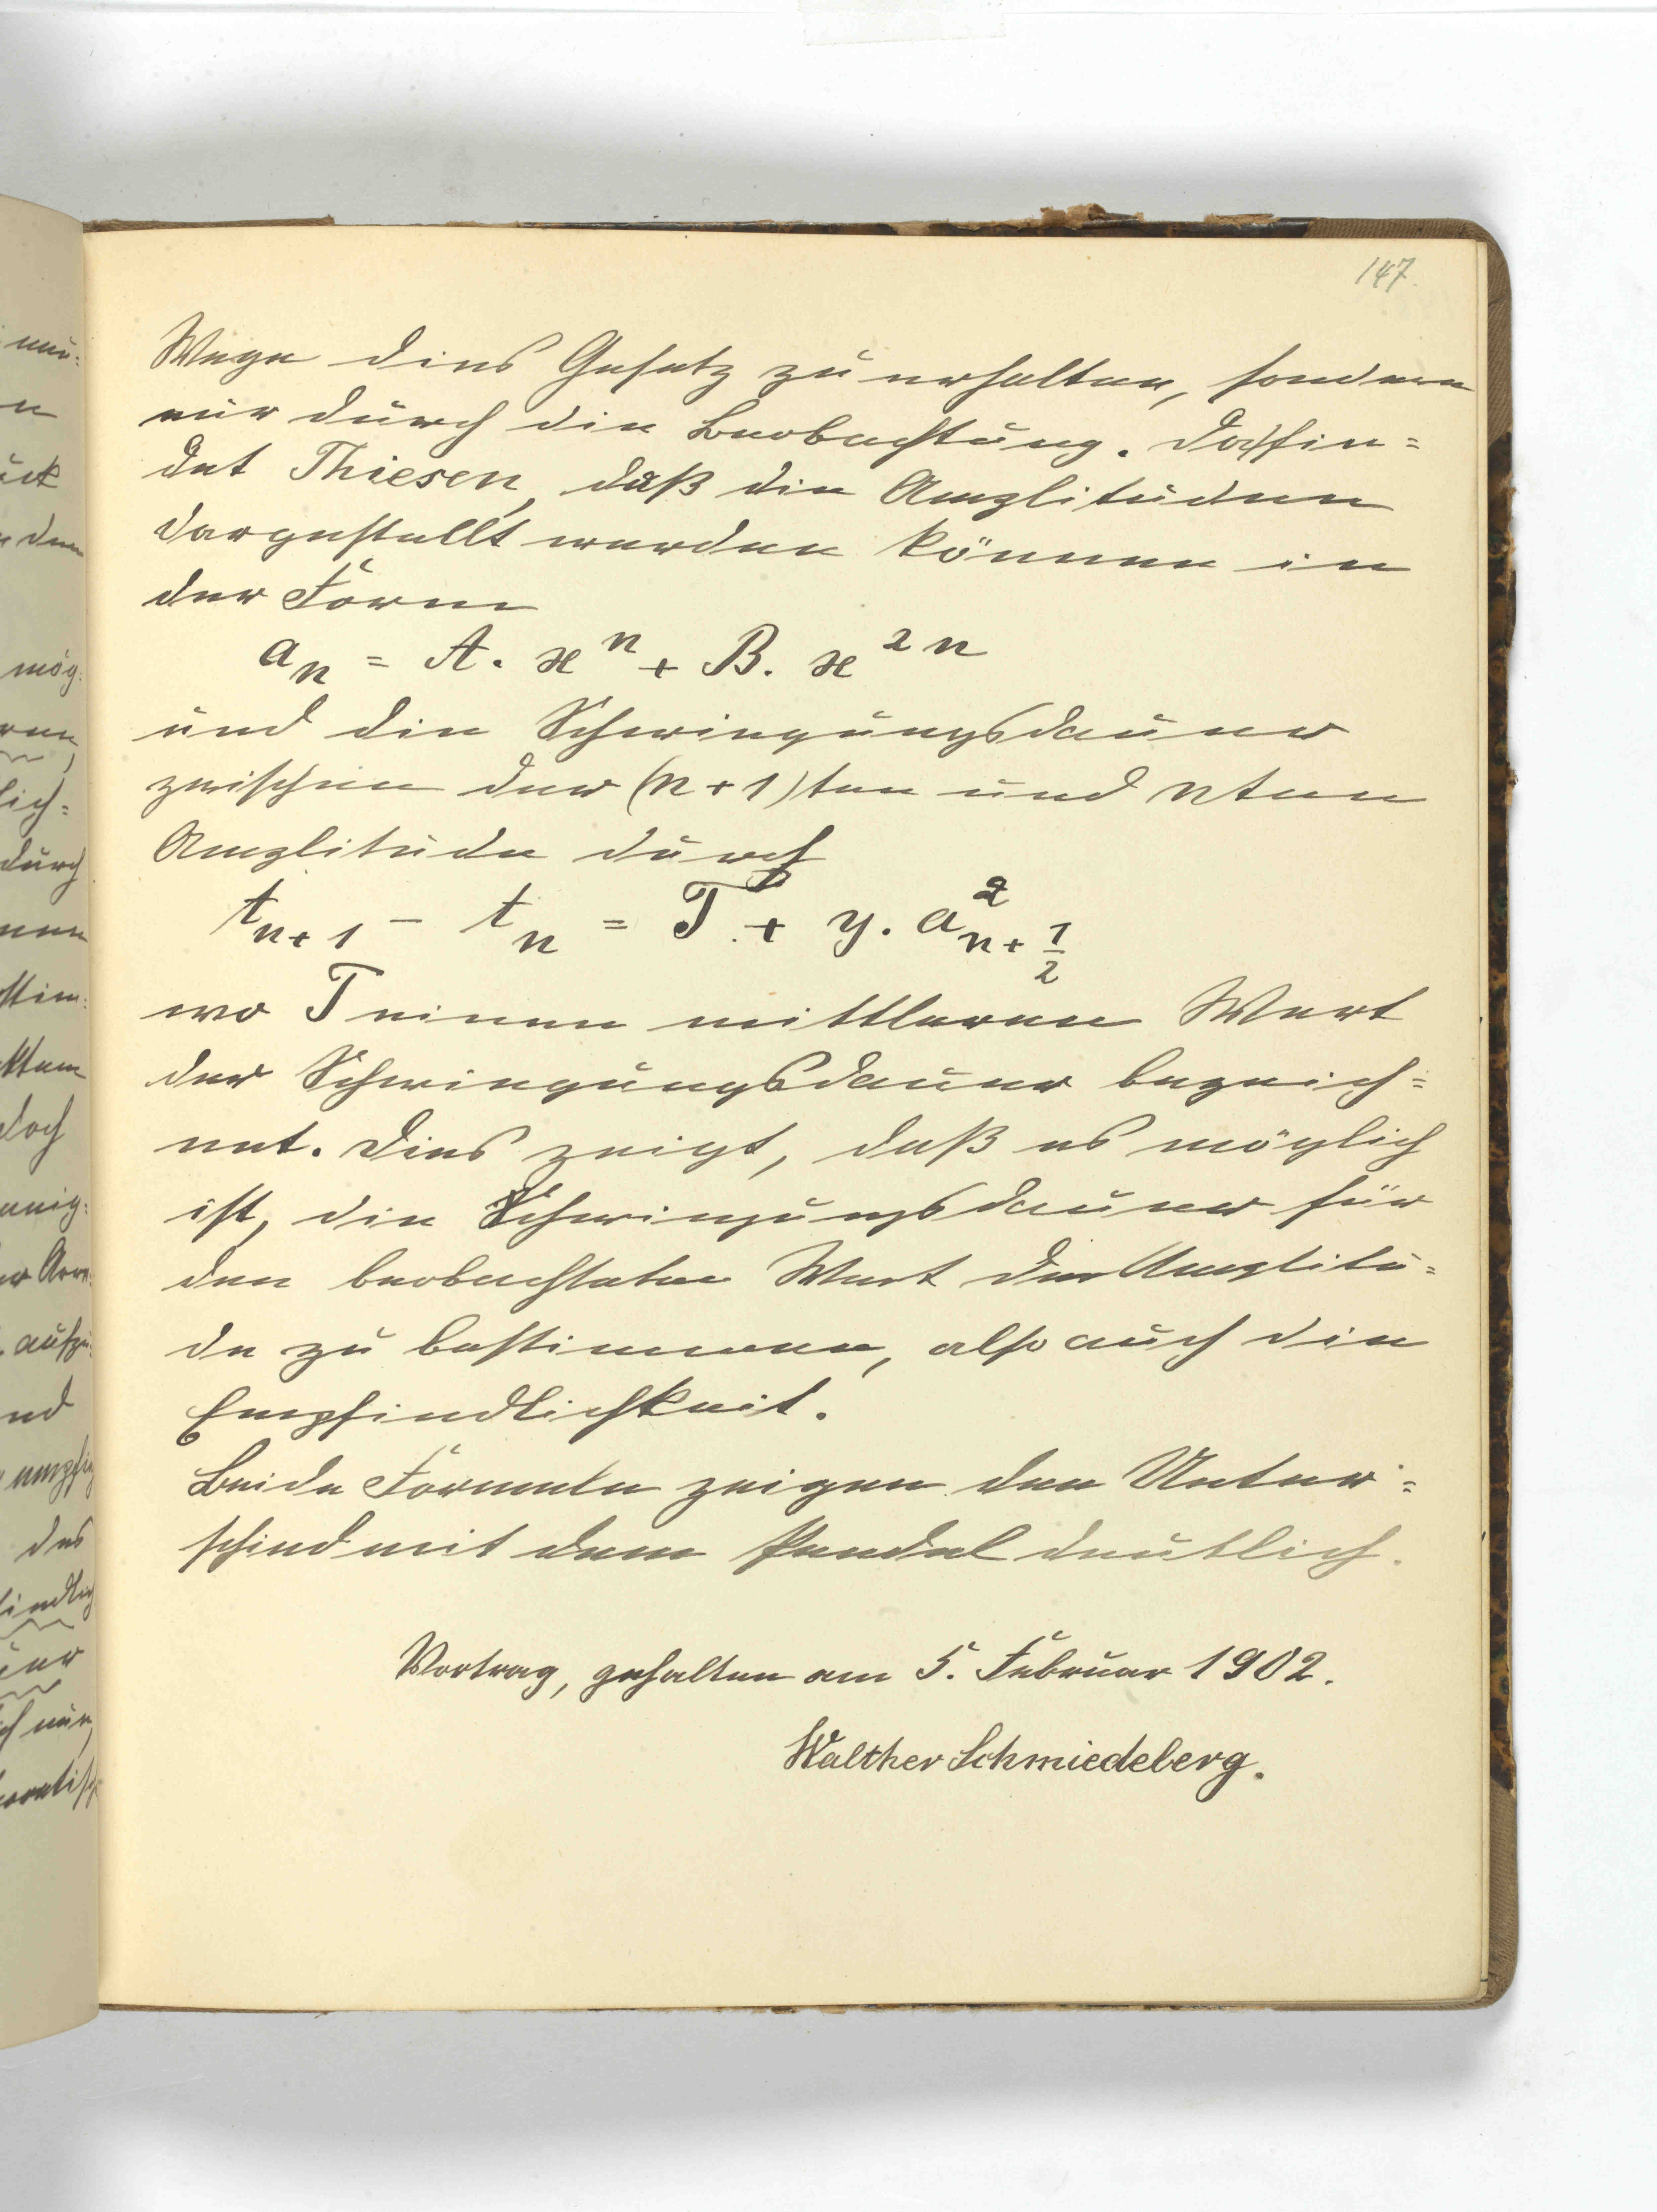 147.
Wege dies Gesetz zu erhalten, sondern
nur durch die Beobachtung. Da fin=
det Thiesen, daß die Amplituden
dargestellt werden können in
der Form
a_n = A. x^n + B. x^{2n}
und die Schwingungsdauer
zwischen der (n+1)ten und nten
Amplitude durch
t_{n+1} - t_n = T + y. a^2_{n+1/2}
wo T einen mittleren Wert
der Schwingungsdauer bezeich=
net. Dies zeigt, daß es möglich
ist, die Schwingungsdauer für
den beobachteten Wert der Amplitu=
de zu bestimmen, also auch die
Empfindlichkeit.
Beide Formeln zeigen den Unter=
schied mit dem Pendel deutlich.
Vortrag, gehalten am 5. Februar 1902.
Walther Schmiedeberg.